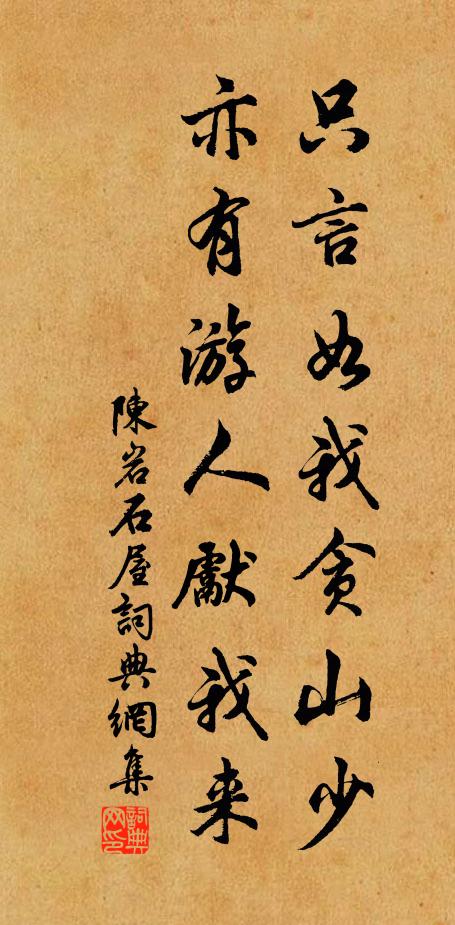 只言如我貪山少
亦有游人獻我来
陳岩石屋詞典網集
詞典网印